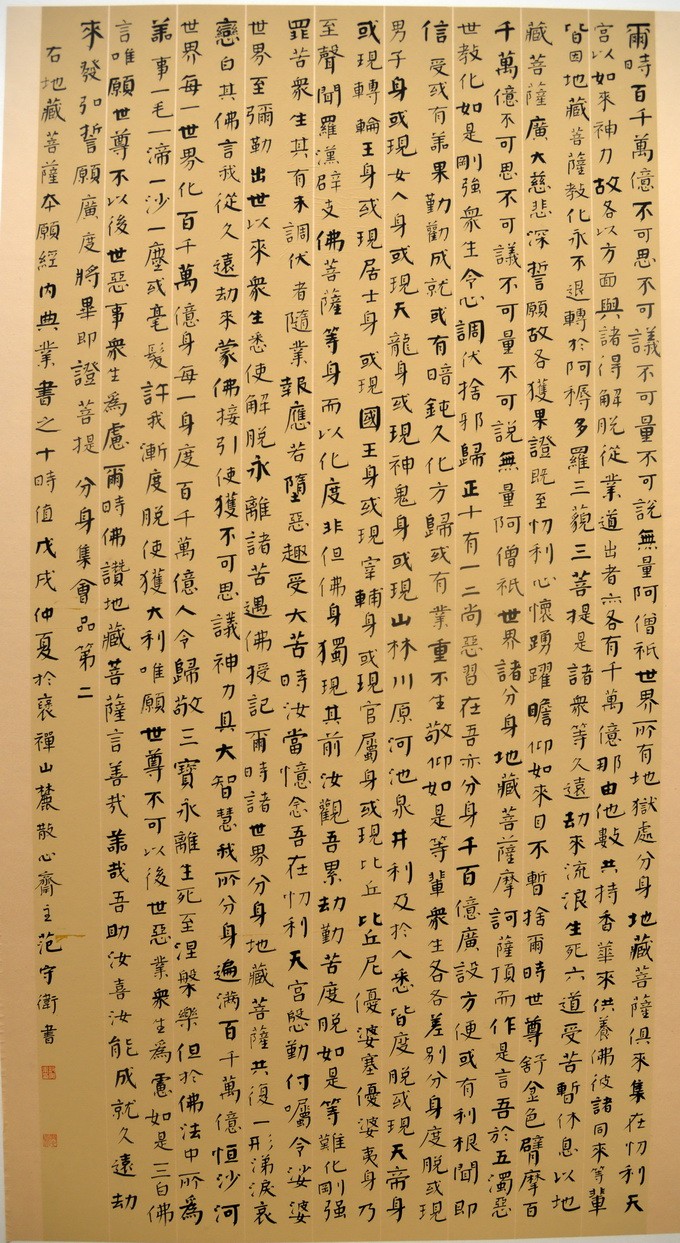 爾時百千萬億不可思不可議不可量不可說無量阿僧祇世界所有地獄處分身地藏菩薩俱來集在忉利天
宮以如來神力故各以方面與諸得解脫從業道出者亦各有千萬億那由他數共持香華來供養佛彼諸同來等輩
皆因地藏菩薩教化永不退轉於阿耨多羅三藐三菩提是諸衆等久遠劫來流浪生死六道受苦暫休息以地
藏菩薩廣大慈悲深誓願故各獲果證既至忉利心懷踴躍瞻仰如來目不暫捨爾時世尊舒金色臂摩百
千萬億不可思不可議不可量不可說無量阿僧祇世界諸分身地藏菩薩摩訶薩頂而作是言吾於五濁惡
世教化如是剛強衆生令心調伏捨邪歸正十有一二尚惡習在吾亦分身千百億廣設方便或有利根聞即
信受或有善果勤勸成就或有暗鈍久化方歸或有業重不生敬仰如是等輩衆生各各差別分身度脫或現
男子身或現女人身或現天龍身或現神鬼身或現山林川原河池泉井利及於人悉皆度脫或現天帝身
或現轉輪王身或現居士身或現國王身或現宰輔身或現官屬身或現比丘比丘尼優婆塞優婆夷身乃
至聲聞羅漢辟支佛菩薩等身而以化度非但佛身獨現其前汝觀吾累劫勤苦度脫如是等難化剛強
罪苦衆生其有未調伏者隨業報應若墮惡趣受大苦時汝當憶念吾在忉利天宮慇勤付囑令娑婆
世界至彌勒出世以來衆生悉使解脫永離諸苦遇佛授記爾時諸世界分身地藏菩薩共復一形涕淚哀
戀白其佛言我從久遠劫來蒙佛接引使獲不可思議神力具大智慧我所分身遍滿百千萬億恒沙河
世界每一世界化百千萬億身每一身度百千萬億人令歸敬三寶永離生死至涅槃樂但於佛法中所爲
善事一毛一渧一沙一塵或毫髮許我漸度脫使獲大利唯願世尊不可以後世惡業衆生爲慮如是三白佛
言唯願世尊不以後世惡事衆生爲慮爾時佛讚地藏菩薩言善哉善哉吾助汝喜汝能成就久遠劫
來發弘誓願廣度將畢即證菩提 分身集會品第二
右地藏菩薩本願經內典業書之十時值戊戌仲夏於褒禪山麓散心齋主范守衛書